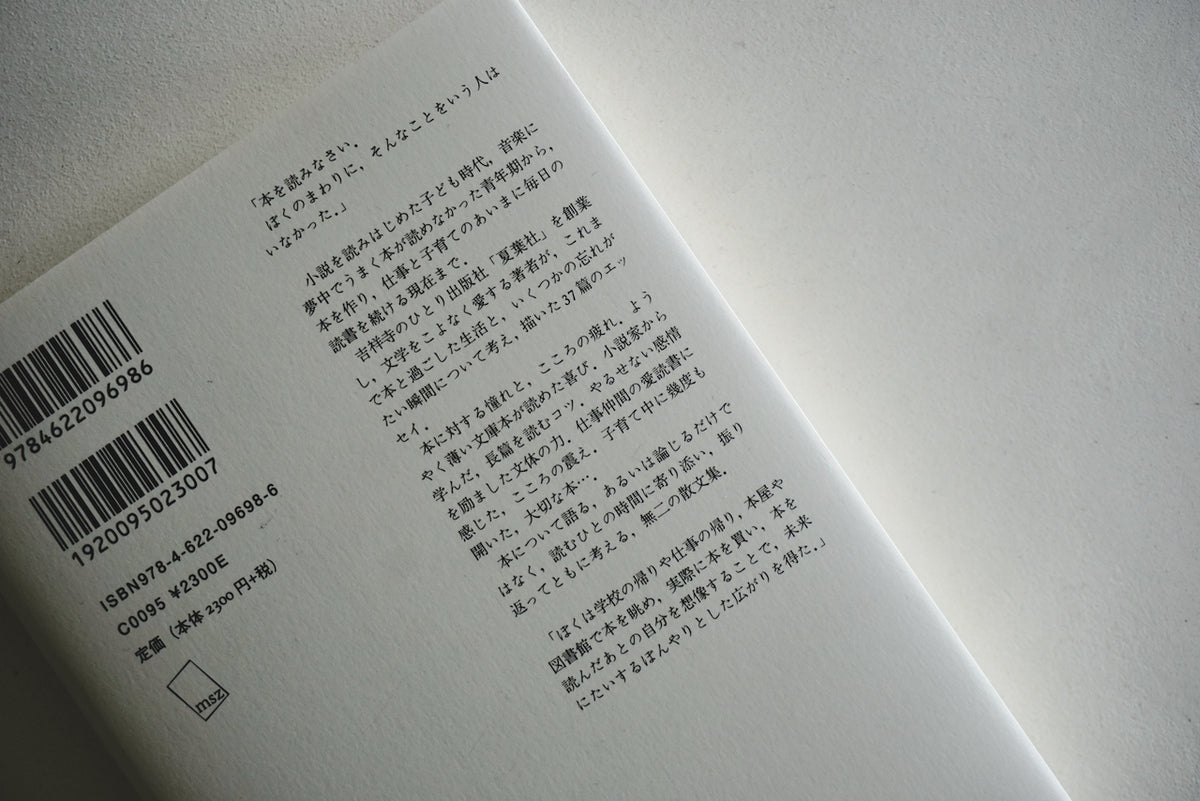 「本を読みなさい．
ぼくのまわりに，そんなことをいう人は
いなかった．」
小説を読みはじめた子ども時代，音楽に
夢中でうまく本が読めなかった青年期から，
本を作り，仕事と子育てのあいまに毎日の
読書を続ける現在まで．
吉祥寺のひとり出版社「夏葉社」を創業
し，文学をこよなく愛する著者が，これま
で本と過ごした生活と，いくつかの忘れが
たい瞬間について考え，描いた37篇のエッ
セイ．
本に対する憧れと，こころの疲れ．よう
やく薄い文庫本が読めた喜び．小説家から
学んだ，長篇を読むコツ．やるせない感情
を励ました文体の力．仕事仲間の愛読書に
感じた，こころの震え．子育て中に幾度も
開いた，大切な本…．
本について語る，あるいは論じるだけで
はなく，読むひとの時間に寄り添い，振り
返ってともに考える，無二の散文集．
「ぼくは学校の帰りや仕事の帰り，本屋や
図書館で本を眺め，実際に本を買い，本を
読んだあとの自分を想像することで，未来
にたいするぼんやりとした広がりを得た．」
9784622096986
1920095023007
ISBN978-4-622-09698-6
C0095 ¥2300E
定価（本体 2300 円+税）
msz